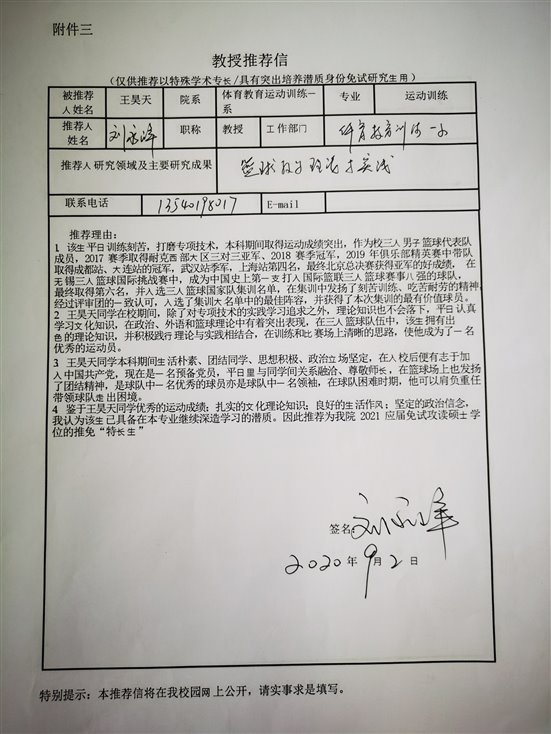 附件三
教授推荐信
（仅供推荐以特殊学术专长/具有突出培养潜质身份免试研究生用）
被推荐人姓名 王昊天 院系 体育教育运动训练一系 专业 运动训练
推荐人姓名 职称 教授 工作部门 体育教育训练一系
推荐人研究领域及主要研究成果 篮球教学理论与实践
联系电话 13540198017 E-mail
推荐理由：
1 该生平日训练刻苦，打磨专项技术，本科期间取得运动成绩突出，作为校三人男子篮球代表队
成员，2017 赛季取得耐克西部大区三对三亚军、2018 赛季冠军，2019 年俱乐部精英赛中带队
取得成都站、大连站的冠军，武汉站季军，上海站第四名，最终北京总决赛获得亚军的好成绩，在
无锡三人篮球国际挑战赛中，成为中国史上第一支打入国际篮联三人篮球赛事八强的球队，
最终取得第六名，并入选三人篮球国家队集训名单，在集训中发扬了刻苦训练、吃苦耐劳的精神，
经过评审团的一致认可，入选了集训大名单中的最佳阵容，并获得了本次集训的最有价值球员。
2 王昊天同学在校期间，除了对专项技术的实践学习追求之外，理论知识也不会落下，平日认真
学习文化知识，在政治、外语和篮球理论中有着突出表现，在三人篮球队伍中，该生拥有出
色的理论知识，并积极践行理论与实践相结合，在训练和比赛场上清晰的思路，使他成为了一名
优秀的运动员。
3 王昊天同学本科期间生活朴素、团结同学、思想积极、政治立场坚定，在入校后便有志于加
入中国共产党，现在是一名预备党员，平日里与同学间关系融洽、尊敬师长，在篮球场上也发扬
了团结精神，是球队中一名优秀的球员亦是球队中一名领袖，在球队困难时期，他可以肩负重任
带领球队走出困境。
4 鉴于王昊天同学优秀的运动成绩；扎实的文化理论知识；良好的生活作风；坚定的政治信念，
我认为该生已具备在本专业继续深造学习的潜质。因此推荐为我院 2021 应届免试攻读硕士学
位的推免“特长生”
签名：
2020 年 9 月 2 日
特别提示：本推荐信将在我校园网上公开，请实事求是填写。